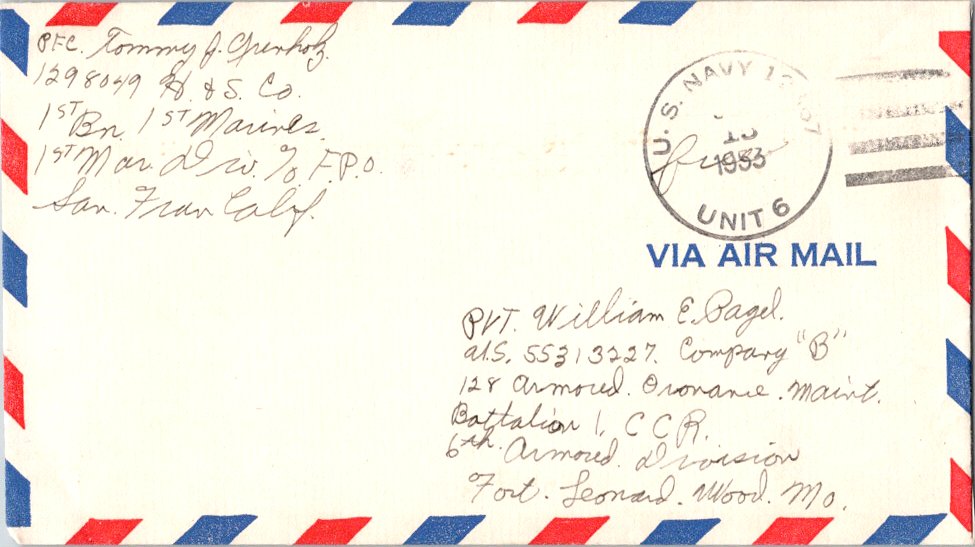 PFC. Tommy J. Grenholz.
1298049 H. & S. Co.
1ST Bn. 1ST Marines.
1ST Mar. Div. % F.P.O.
San. Fran Calif.
U.S. NAVY
13
1953
Free
UNIT 6
VIA AIR MAIL
PVT. William E. Pagel.
U.S. 55313227. Company "B"
128 Armored. Ordnance. Maint.
Battalion 1, C C R.
6th. Armored. Division
Fort. Leonard. Wood. Mo.